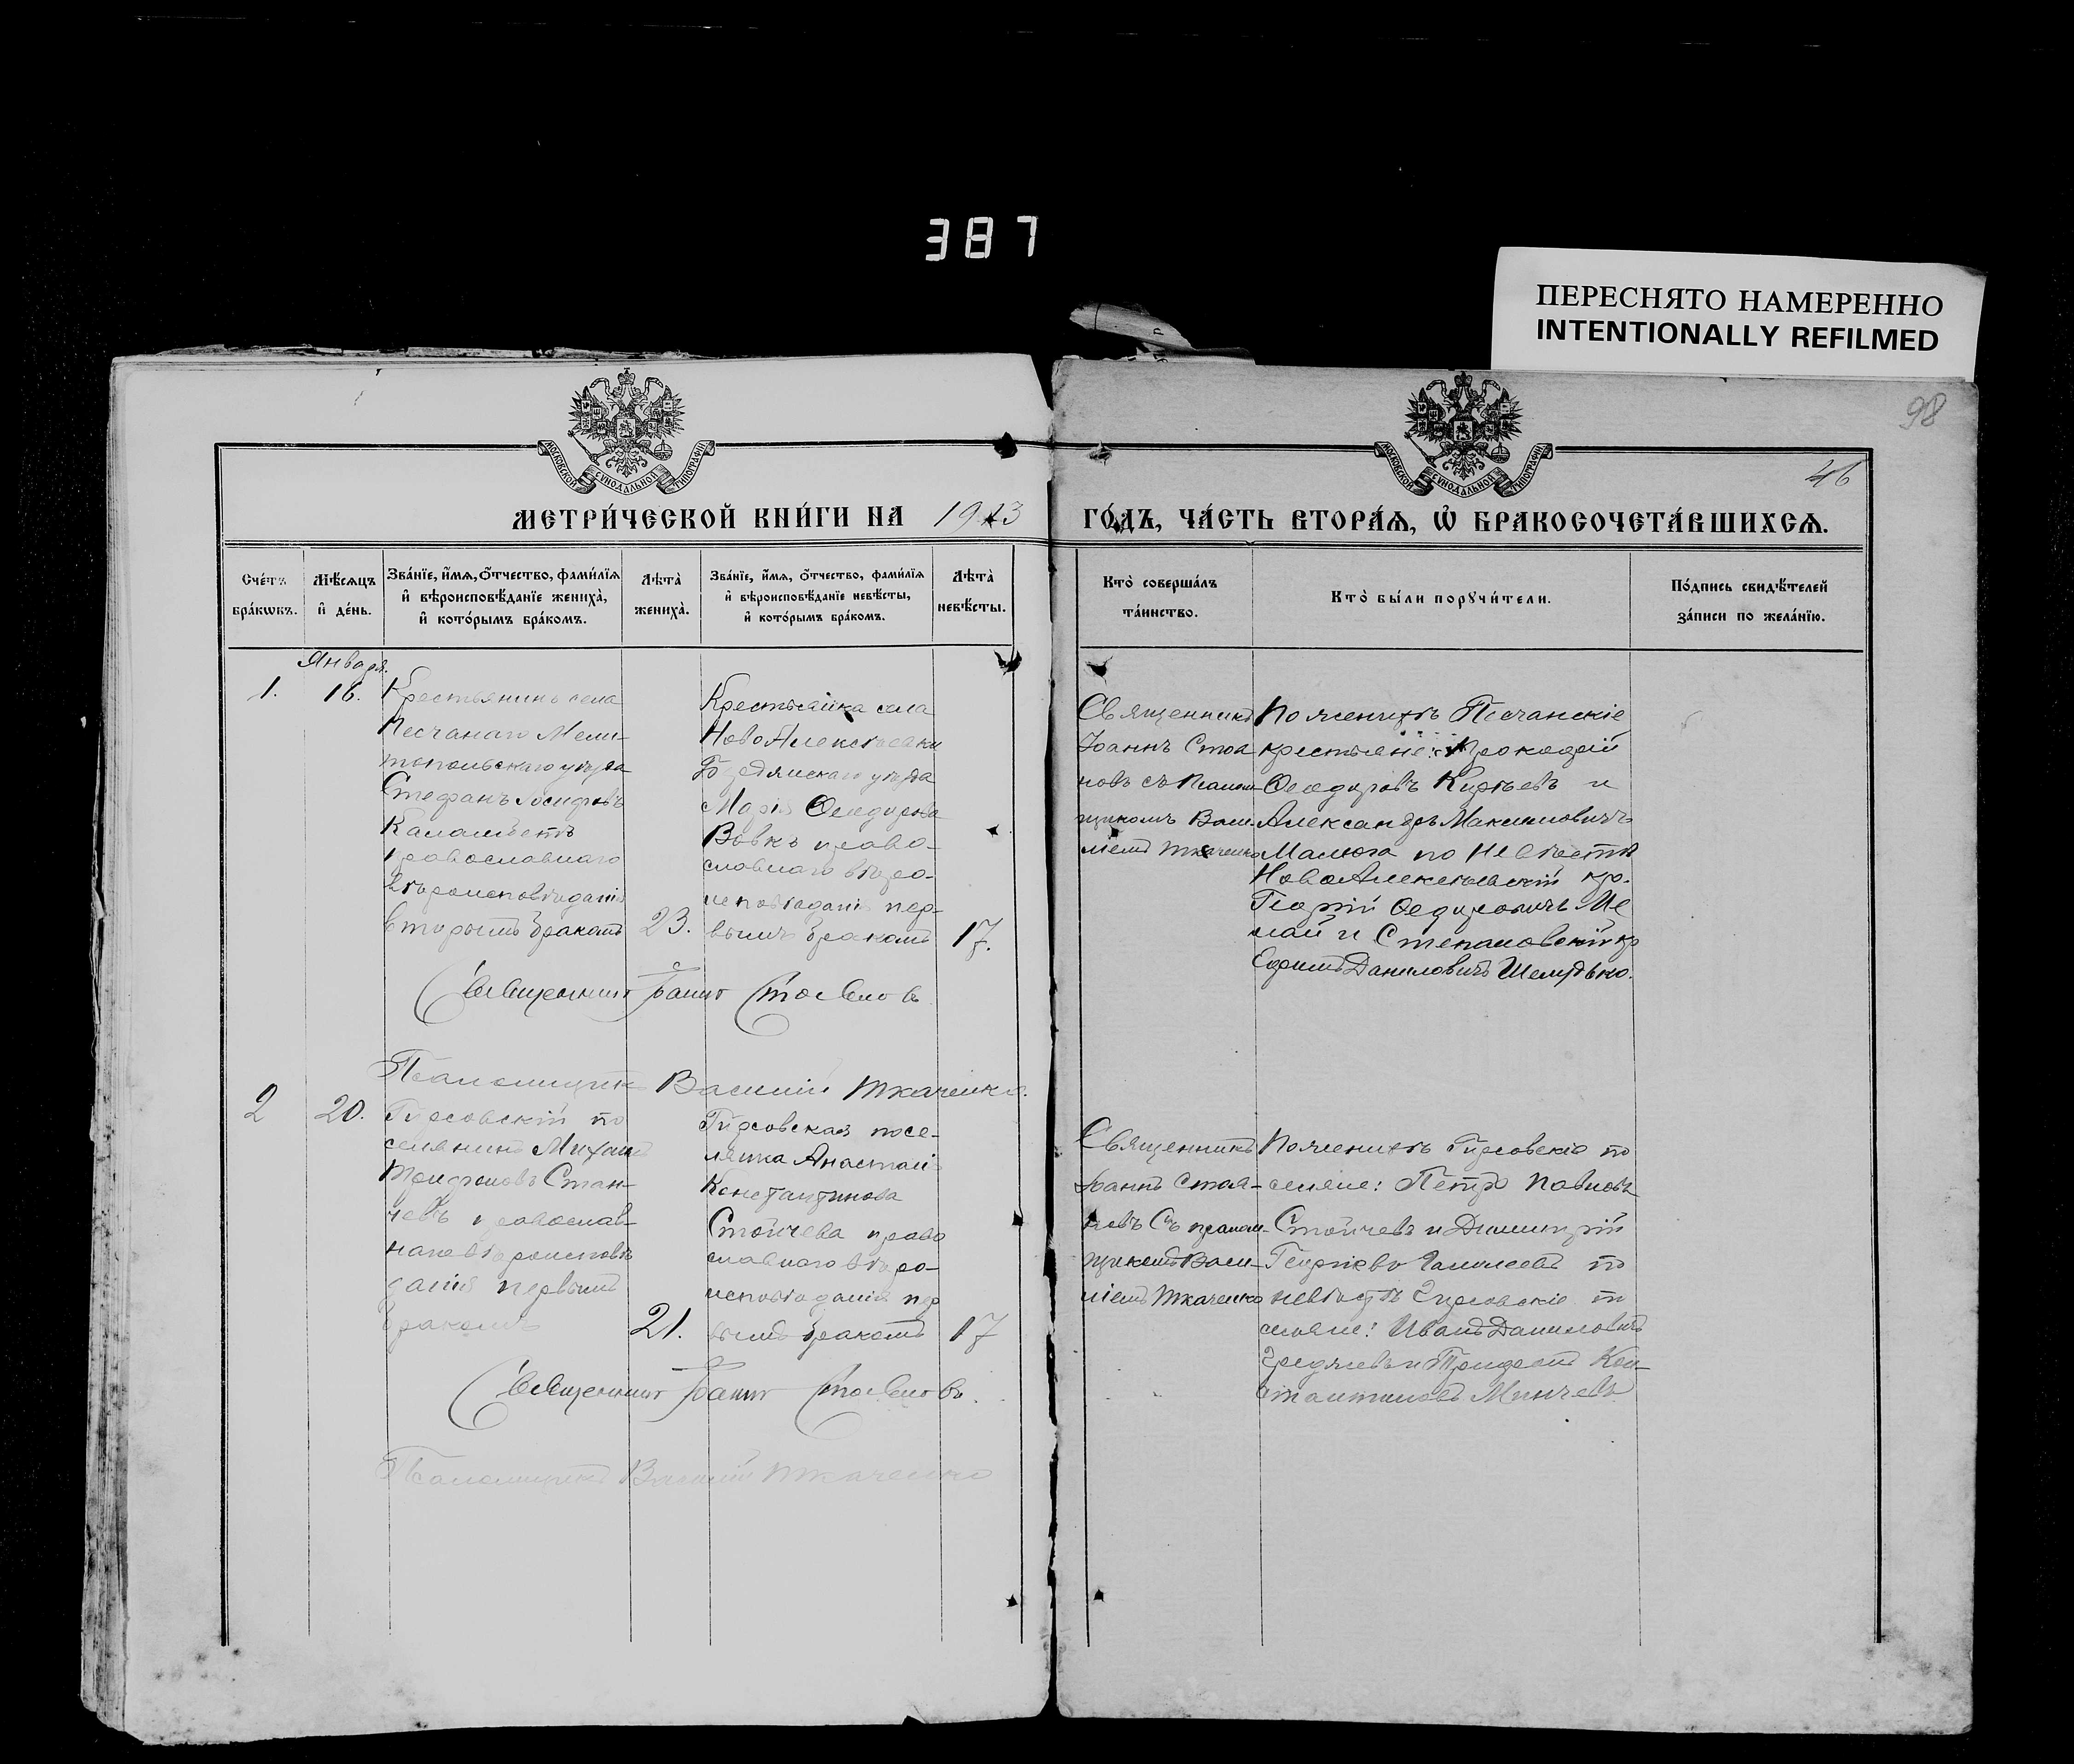 387
ПЕРЕСНЯТО НАМЕРЕННО
INTENTIONALLY REFILMED
98
46
МОСКОВСКОЙ СѴНОДАЛЬНОЙ ТИПОГРАФІИ
МОСКОВСКОЙ СѴНОДАЛЬНОЙ ТИПОГРАФІИ
МЕТРИ́ЧЕСКОЙ КНИ́ГИ НА 1913 ГО́ДЪ, ЧА́СТЬ ВТОРА́Ѧ, Ѽ БРАКОСОЧЕТА́ВШИХСѦ.
Сче́тъ
бра́кѡвъ.
Мѣ́сѧцъ
и҆ де́нь.
Зва́нїе, и҆́мѧ, ѻ҆́тчество, фами́лїѧ
и҆ вѣроисповѣ́данїе жениха̀,
и҆ кото́рымъ бра́комъ.
Лѣта̀
жениха̀.
Зва́нїе, и҆́мѧ, ѻ҆́тчество, фами́лїѧ
и҆ вѣроисповѣ́данїе невѣ́сты,
и҆ кото́рымъ бра́комъ.
Лѣта̀
невѣ́сты.
Кто̀ соверша́лъ
та́инство.
Кто̀ бы́ли порꙋчи́тели.
По́дпись свидѣ́телей
за́писи по жела́нїю.
Января.
1.
16.
Крестьянинъ села
Песчанаго Мели-
топольскаго уѣзда
Стефанъ Іосифовъ
православнаго
вѣроисповѣданія
вторымъ бракомъ
23.
Крестьянка села
НовоАлексѣевки
Бердянскаго уѣзда
Марія Ѳеодорова
Вовкъ право-
славнаго вѣро-
исповѣданія пер-
вымъ бракомъ
17.
Священникъ
Іоаннъ Стоя
новъ съ Псалом
щикомъ Васи-
ліемъ Ткаченко
По женихѣ Песчанскіе
крестьяне:
Ѳеодоровъ и
Александръ Максимовичъ
Малюга по Невѣстѣ
НовоАлексѣевскій кр.
Георгій Ѳедоровичъ
и Степановскій кр
Ефимъ Даниловичъ Шелудько.
Священникъ Іоаннъ Стояновъ
Псаломщикъ Василій Ткаченко.
2
20.
Гирсовскій по
селянинъ Михаилъ
Трифоновъ Стан-
чевъ православ-
наго вѣроисповѣ
данія первымъ
бракомъ
21.
Гирсовская посе-
лянка Анастасія
Константинова
Стойчева право
славнаго вѣро-
исповѣданія пер
вымъ бракомъ
17
Священникъ
Іоаннъ Стоя-
новъ Съ псалом-
щикомъ Васи-
ліемъ Ткаченко
По женихѣ Гирсовскіе по
селяне: Петръ Павловъ
Стойчевъ и Димитрій
Георгіевъ по
невѣстѣ Гирсовскіе по
селяне: Иванъ Даниловичъ
и Трифонъ Кон-
стантиновъ Минчевъ
Священникъ Іоаннъ Стояновъ.
Псаломщикъ Василій Ткаченко